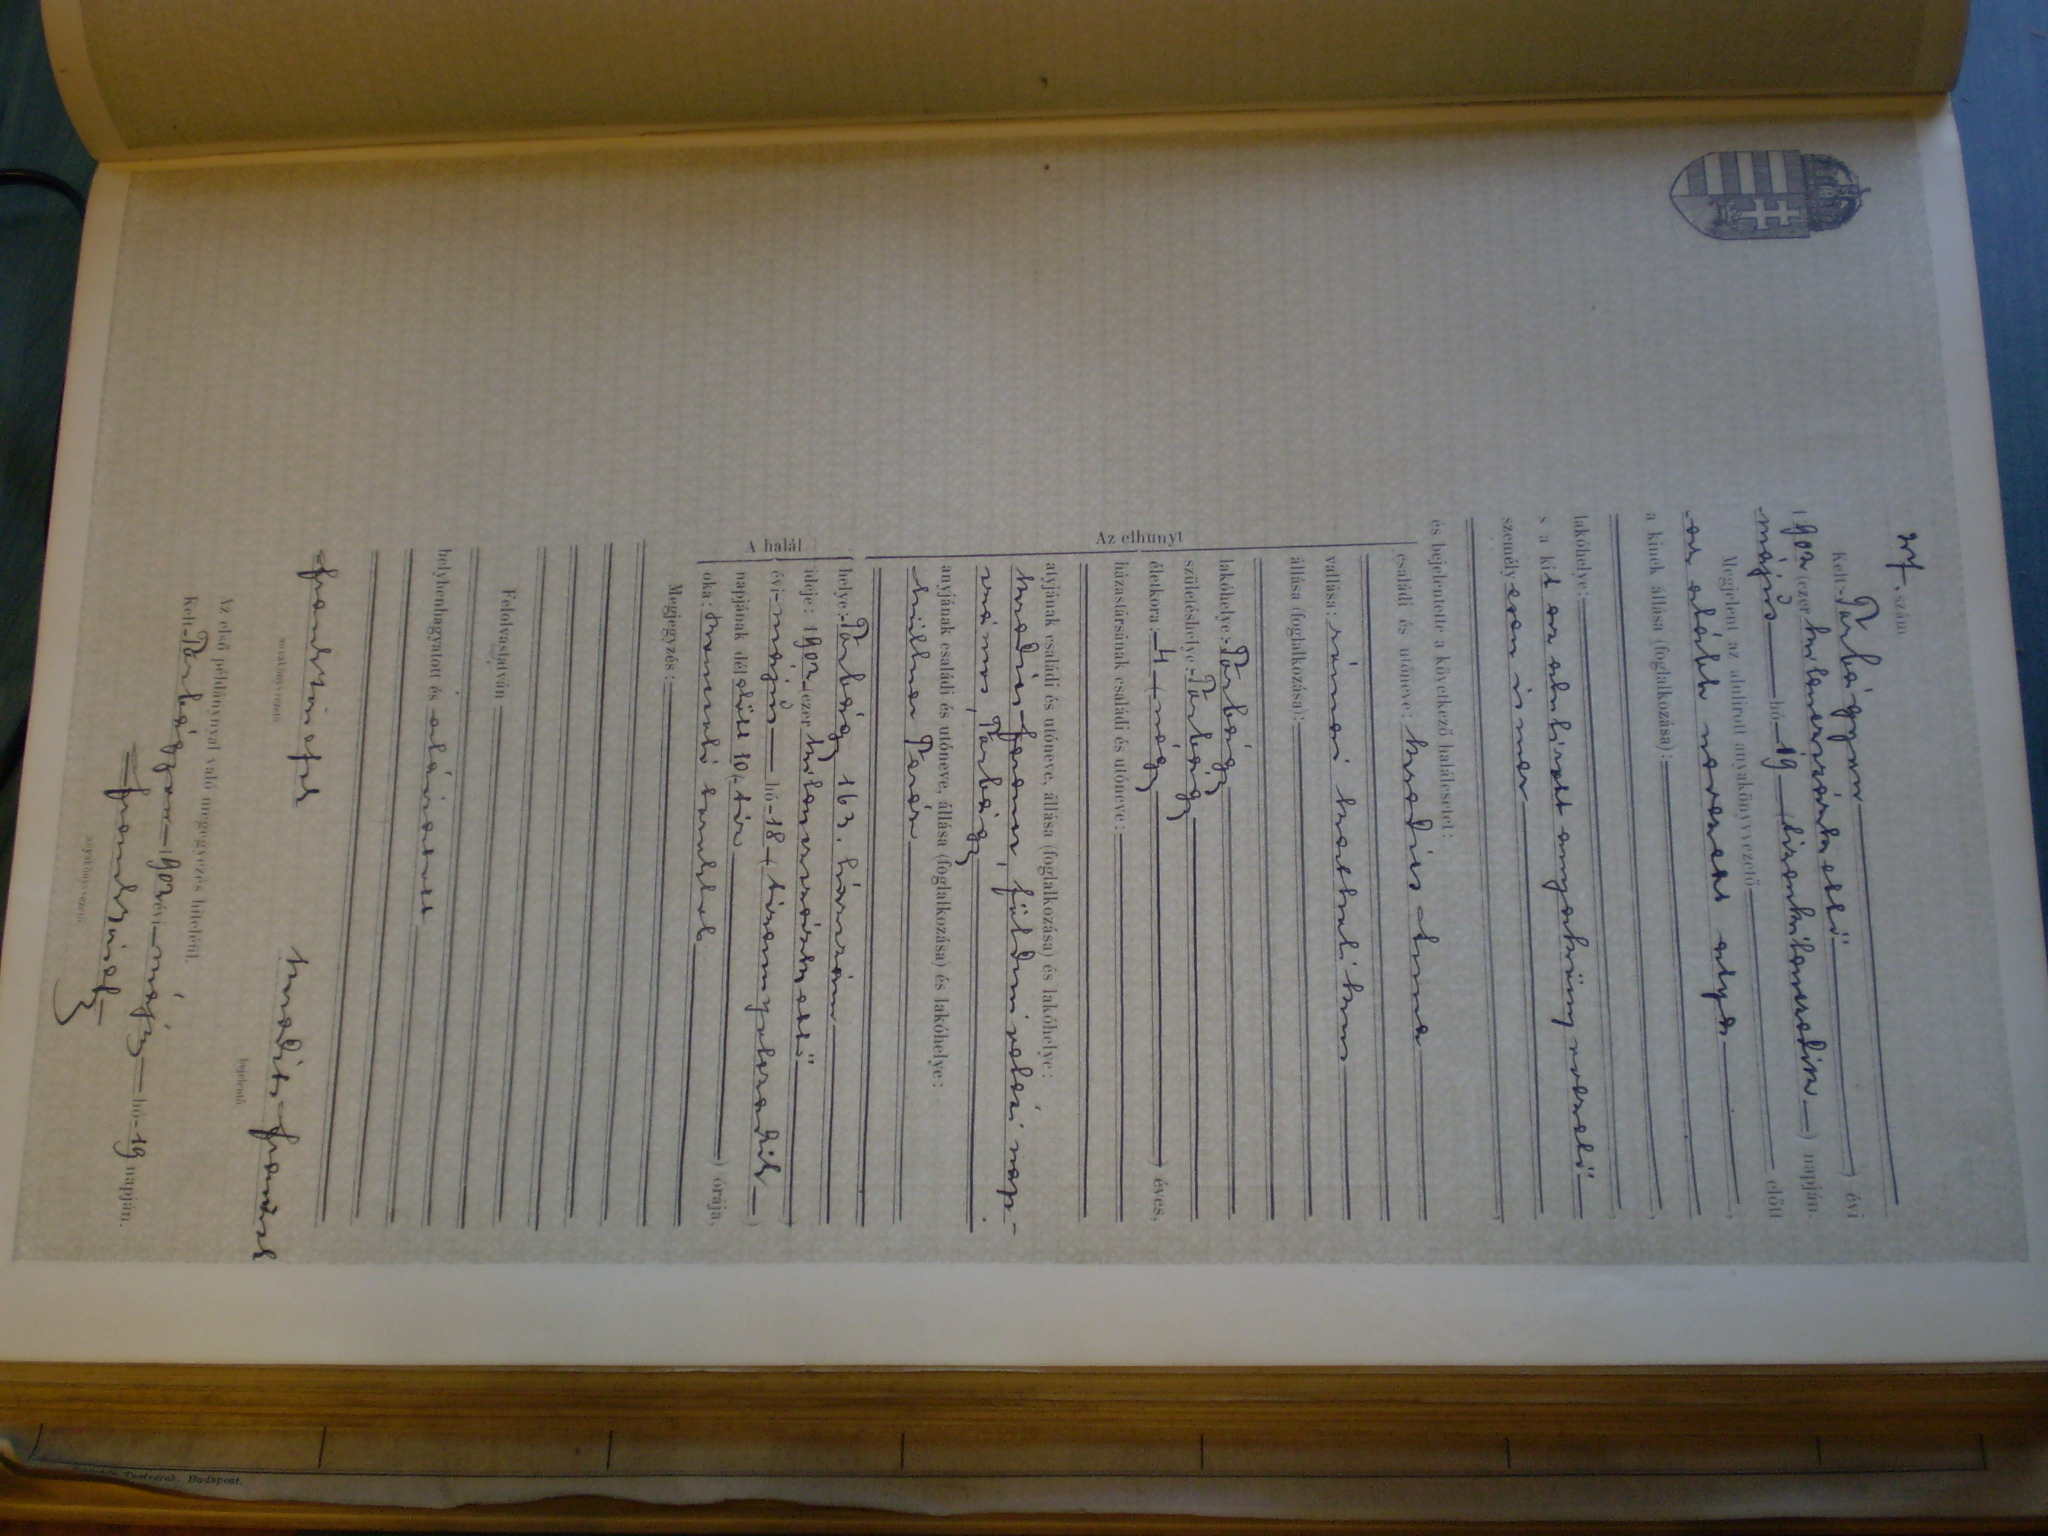 szám
Kelt Tárbágyon évi
1902 (ezer kilencszázkettő
május hó 19 (tizenkilencedik) napján.
Megjelent az alulirott anyakönyvvezető előtt
az alább nevezett atya,
a kinek állása (foglalkozása):
lakóhelye:
s a kit az alulirott anyakönyvvezető
személyesen ismer,
és bejelentette a következő halálesetet:
Az elhunyt
családi és utóneve: Anna
vallása: római katholikus
állása (foglalkozása):
lakóhelye: Tárbágy
születéshelye: Tárbágy
életkora: 4 (négy) éves,
házastársának családi és utóneve:
atyjának családi és utóneve, állása (foglalkozása) és lakóhelye:
Ferencz, földmivelési nap-
számos, Tárbágy
anyjának családi és utóneve, állása (foglalkozása) és lakóhelye:
Teréz
A halál
helye: Tárbágy 163. házszám
ideje: 1902 (ezer kilenczszázkettő)
évi május hó 18 (tizennyolczadik)
napjának délelőtt 10 (tíz) órája,
oka:
Megjegyzés:
Felolvastatván
helybenhagyatott és aláiratott
anyakönyvvezető
bejelentő
Az első példánynyal való megegyezés hiteléül.
Kelt Tárbágyon 1902 évi május hó 19 napján.
anyakönyvvezető
Testvérek, Budapest.